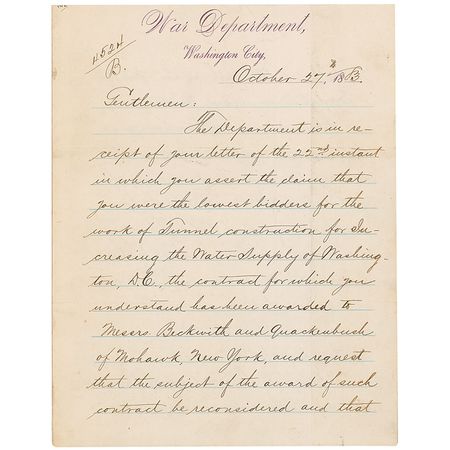 War Department,
Washington City,
4524
B.
October 27th, 1883.
Gentlemen:
The Department is in re-
ceipt of your letter of the 22nd instant
in which you assert the claim that
you were the lowest bidders for the
work of Tunnel construction for In-
creasing the Water Supply of Washing-
ton, D.C., the contract for which you
understand has been awarded to
Messrs. Beckwith and Quackenbush
of Mohawk, New York, and request
that the subject of the award of such
contract be reconsidered and that